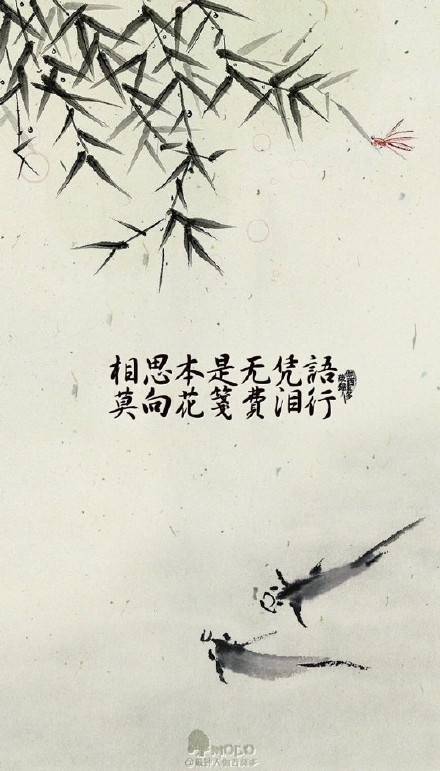 相思本是无凭語
莫向花箋費泪行
MOLO